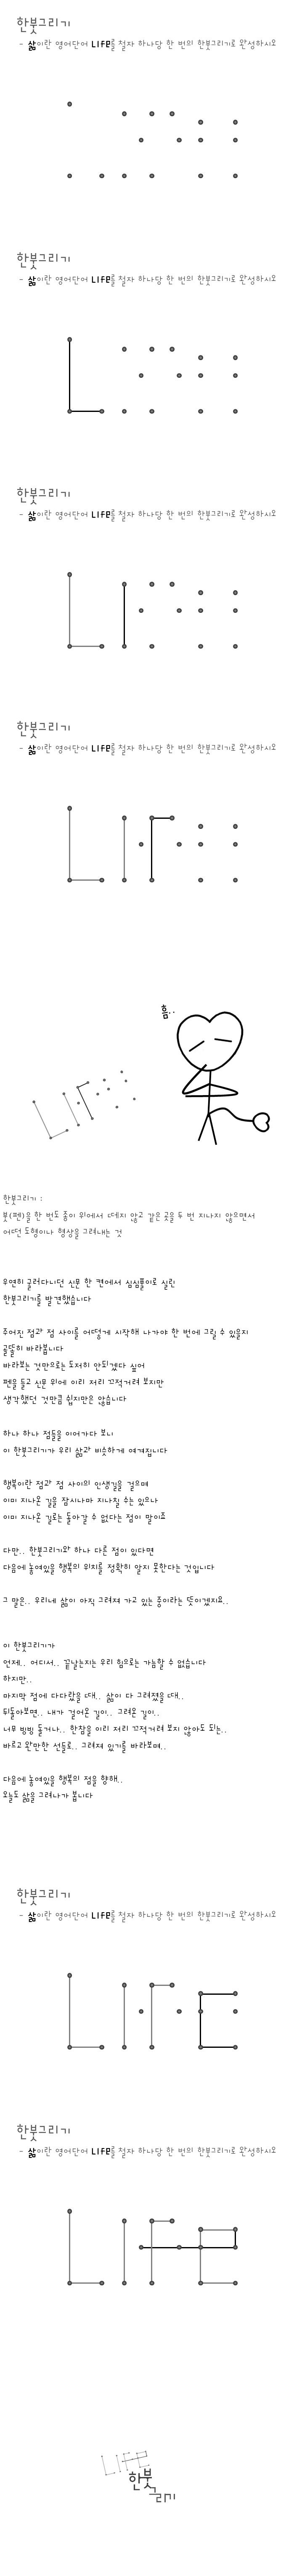 한붓그리기
- 삶이란 영어단어 LIFE를 철자 하나당 한 번의 한붓그리기로 완성하시오
한붓그리기
- 삶이란 영어단어 LIFE를 철자 하나당 한 번의 한붓그리기로 완성하시오
한붓그리기
- 삶이란 영어단어 LIFE를 철자 하나당 한 번의 한붓그리기로 완성하시오
한붓그리기
- 삶이란 영어단어 LIFE를 철자 하나당 한 번의 한붓그리기로 완성하시오
흠..
한붓그리기 :
붓(펜)을 한 번도 종이 위에서 떼지 않고 같은 곳을 두 번 지나지 않으면서
어떤 도형이나 형상을 그려내는 것
우연히 굴러다니던 신문 한 면에서 심심풀이로 실린
한붓그리기를 발견했습니다
주어진 점과 점 사이를 어떻게 시작해 나가야 한 번에 그릴 수 있을지
골똘히 바라봅니다
바라보는 것만으로는 도저히 안되겠다 싶어
펜을 들고 신문 위에 이리 저리 끄적거려 보지만
생각했던 것만큼 쉽지만은 않습니다
하나 하나 점들을 이어가다 보니
이 한붓그리기가 우리 삶과 비슷하게 여겨집니다
행복이란 점과 점 사이의 인생길을 걸으며
이미 지나온 길을 잠시나마 지나칠 수는 있으나
이미 지나온 길로는 돌아갈 수 없다는 점이 말이죠
다만.. 한붓그리기와 하나 다른 점이 있다면
다음에 놓여있을 행복의 위치를 정확히 알지 못한다는 것입니다
그 말은.. 우리네 삶이 아직 그려져 가고 있는 중이라는 뜻이겠지요..
이 한붓그리기가
언제.. 어디서.. 끝날는지는 우리 힘으로는 가늠할 수 없습니다
하지만..
마지막 점에 다다랐을 때.. 삶이 다 그려졌을 때..
뒤돌아보면.. 내가 걸어온 길이.. 그려온 길이..
너무 빙빙 돌거나.. 한참을 이리 저리 끄적거려 보지 않아도 되는..
바르고 완만한 선들로.. 그려져 있기를 바라보며..
다음에 놓여있을 행복의 점을 향해..
오늘도 삶을 그려나가 봅니다
한붓그리기
- 삶이란 영어단어 LIFE를 철자 하나당 한 번의 한붓그리기로 완성하시오
한붓그리기
- 삶이란 영어단어 LIFE를 철자 하나당 한 번의 한붓그리기로 완성하시오
LIFE
한붓
그리기